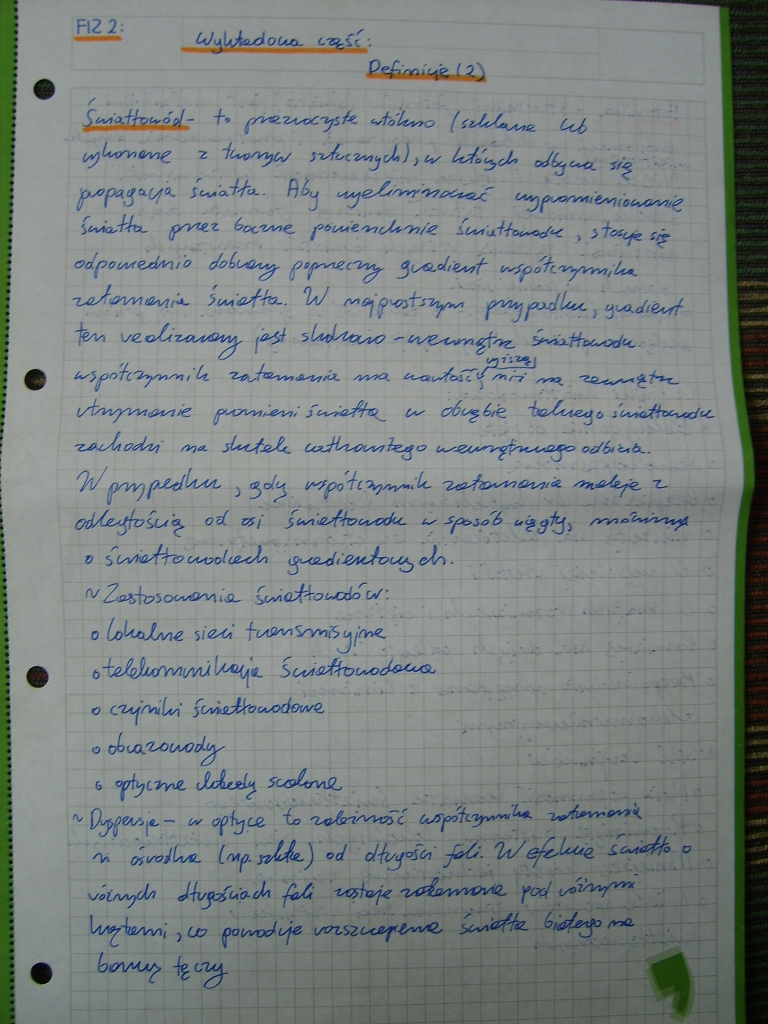 FIZ 2:
Wykładowa część:
Definicje (2)
Światłowód - to przezroczyste włókno (szklane lub
wykonane z tworzyw sztucznych), w których odbywa się
propagacja światła. Aby wyeliminować wypromieniowanie
światła przez boczne powierzchnie światłowodu, stosuje się
odpowiednio dobrany poprzeczny gradient współczynnika
załamania światła. W najprostszym przypadku, gradient
ten realizowany jest skokowo - wewnątrz światłowodu
wyższą
współczynnik załamania ma wartość niż na zewnątrz
utrzymanie promieni światła w obrębie takiego światłowodu
zachodzi na skutek całkowitego wewnętrznego odbicia.
W przypadku, gdy współczynnik załamania maleje z
odległością od osi światłowodu w sposób ciągły, mówimy
o światłowodach gradientowych.
~ Zastosowania światłowodów:
o lokalne sieci transmisyjne
o telekomunikacja światłowodowa
o czujniki światłowodowe
o obrazowody
o optyczne układy scalone
~ Dyspersja - w optyce to zależność współczynnika załamania
n ośrodka (np. szkła) od długości fali. W efekcie światło o
różnych długościach fali zostaje załamane pod różnymi
kątami, co powoduje rozszczepienie światła białego na
barwy tęczy